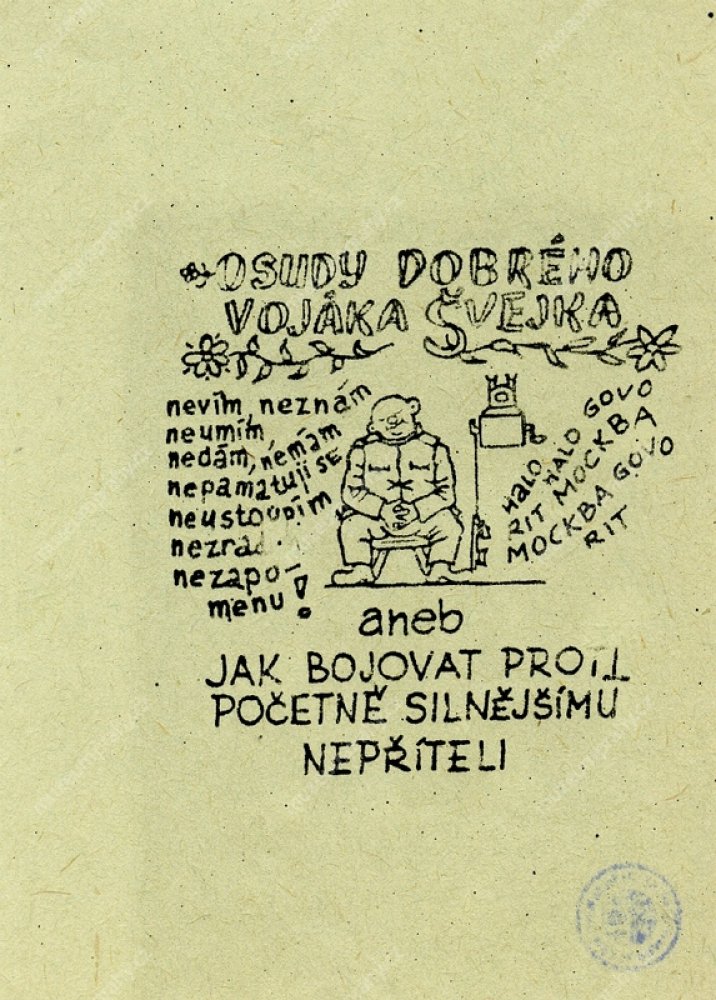 OSUDY DOBRÉHO
VOJÁKA ŠVEJKA
nevím, neznám
neumím,
nedám, nemám
nepamatuji SE
neustoupím
nezapo-
menu!
HALO HALO GOVO
RIT MOCKBA
MOCKBA GOVO
RIT
aneb
JAK BOJOVAT PROTI
POČETNĚ SILNĚJŠÍMU
NEPŘÍTELI